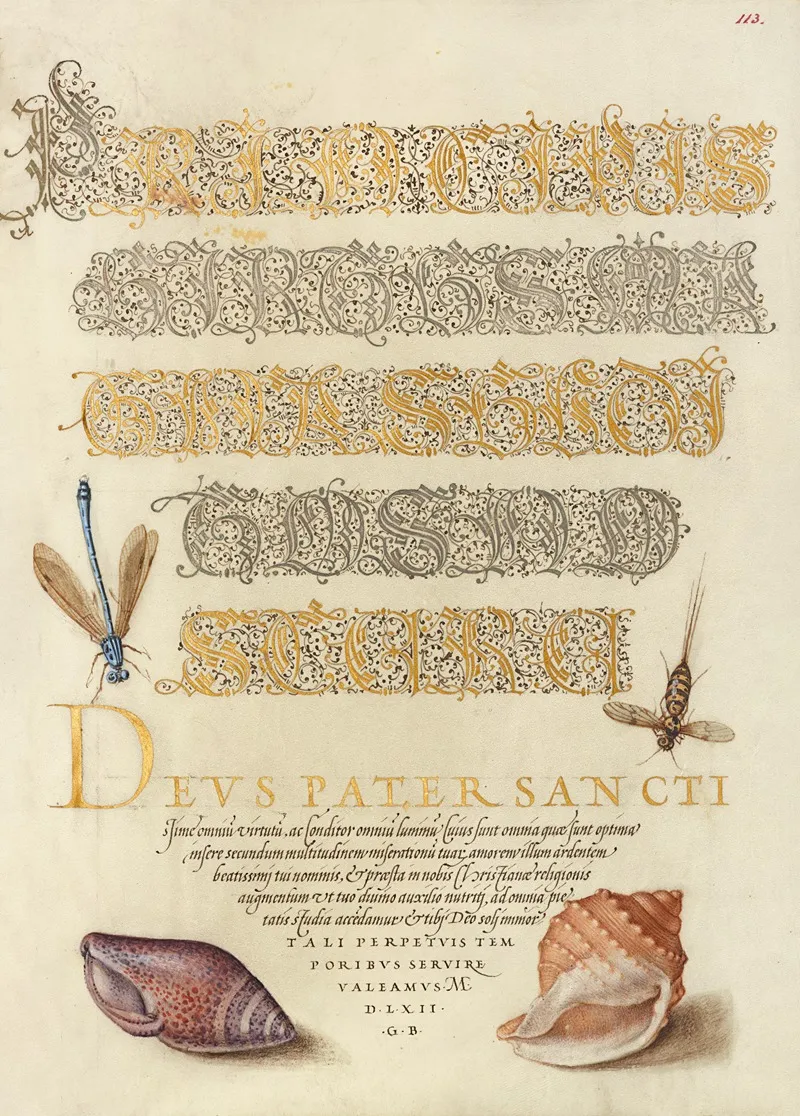 113.
PRINCIPIS
DEVS PATER SANCTI
ssime omniũ virtutũ, ac conditor omniũ luminũ Cuius sunt omnia quæ sunt optima
insere secundum multitudinem miserationũ tuar, amorem illum ardentem
beatissimi tui nominis, & præsta in nobis Christianæ religionis
augmentum vt tuo divino auxilio nutriti, ad omnia pie
tatis studia accedamus & tibi Deo soli immor
TALI PERPETVIS TEM
PORIBVS SERVIRE
VALEAMVS·M·
D·L·XII·
·G·B·